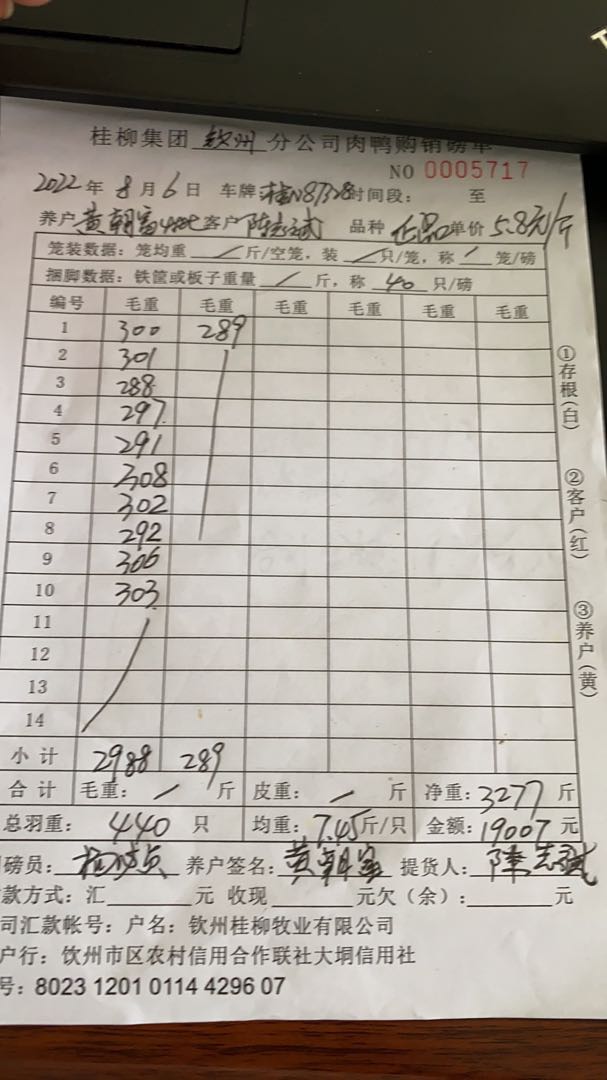 桂柳集团 钦州 分公司肉鸭购销磅单
NO 0005717
2022年8月6日 车牌 桂N87328 时间段: 至
养户 黄朝富 客户 陈志斌 品种 正品 单价 5.8元/斤
笼装数据:笼均重 / 斤/空笼,装 / 只/笼,称 / 笼/磅
捆脚数据:铁筐或板子重量 / 斤,称 40 只/磅
编号 毛重 毛重 毛重 毛重 毛重 毛重
1 300 289
2 301
3 288
4 297
5 291
6 308
7 302
8 292
9 306
10 303
11
12
13
14
小计 2988 289
合计 毛重: / 斤 皮重: / 斤 净重:3277 斤
总羽重: 440 只 均重:7.45斤/只 金额:19007元
磅员: 养户签名:黄朝富 提货人:陈志斌
款方式:汇 元 收现 元欠(余): 元
司汇款帐号:户名:钦州桂柳牧业有限公司
户行:钦州市区农村信用合作联社大垌信用社
号:8023 1201 0114 4296 07
①存根(白)
②客户(红)
③养户(黄)